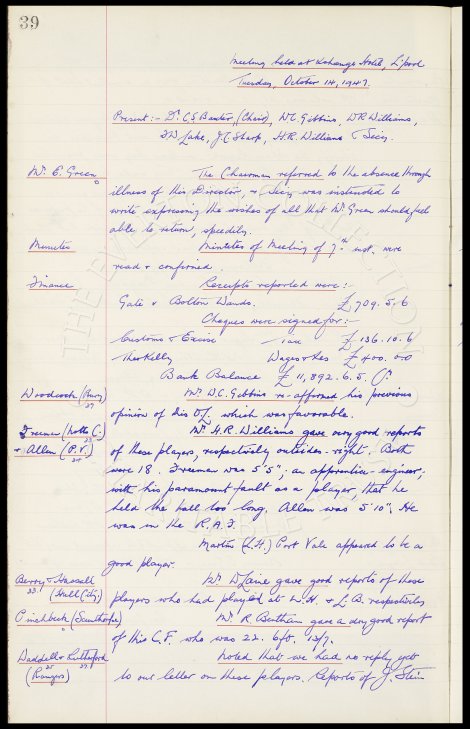 39
Meeting held at Exchange Hotel, L'pool
Tuesday, October 14, 1947.
Present:- Dr. C.S. Baxter, (Chair), W.C. Gibbins, W.R. Williams,
J.C. Sharp, H.R. Williams & Secy.
Mr. E. Green
The Chairman referred to the absence through
illness of this Director, & Secy was instructed to
write expressing the wishes of all that Mr Green should feel
able to return, speedily.
Minutes
Minutes of Meeting of 7th inst. were
read & confirmed.
Finance
Receipts reported were:-
Gate v Bolton Wands. £ 709. 5. 6
Cheques were signed for:-
Customs & Excise Tax £ 136. 10. 6
Theo Kelly Wages & Exs £ 400. 0. 0
Bank Balance £ 11,892. 6. 5. Cr.
Woodcock (Bury)
27
Mr. W.C. Gibbins re-affirmed his previous
opinion of this O/L. which was favourable.
Freeman (Notts C.)
23
& Allen (P.V.)
24
Mr H.R. Williams gave very good reports
of these players, respectively outsides-right. Both
were 18. Freeman was 5'5"; an apprentice-engineer;
with his paramount fault as a player, that he
held the ball too long. Allen was 5'10". He
was in the R.A.F.
Martin (L.H.) Port Vale appeared to be a
good player.
Berry & Hassall
(Hull City)
Mr. gave good reports of these
players who had played at W.H. & L.B. respectively
Pinchbeck (Scunthorpe)
Mr. R. gave a very good report
of this C.F. who was 22. 6ft. 13/7.
Waddell & Rutherford
(Rangers)
Noted that we had no reply yet
to our letter on these players. Reports of J. Stein